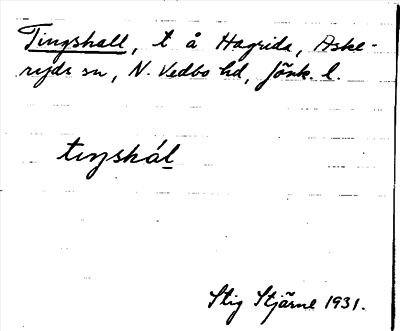 Tingshall, t å Hagrida, Aske-
ryds sn, N. Vedbo hd, Jönk. l.
tıŋshál
Stig Stjärne 1931.